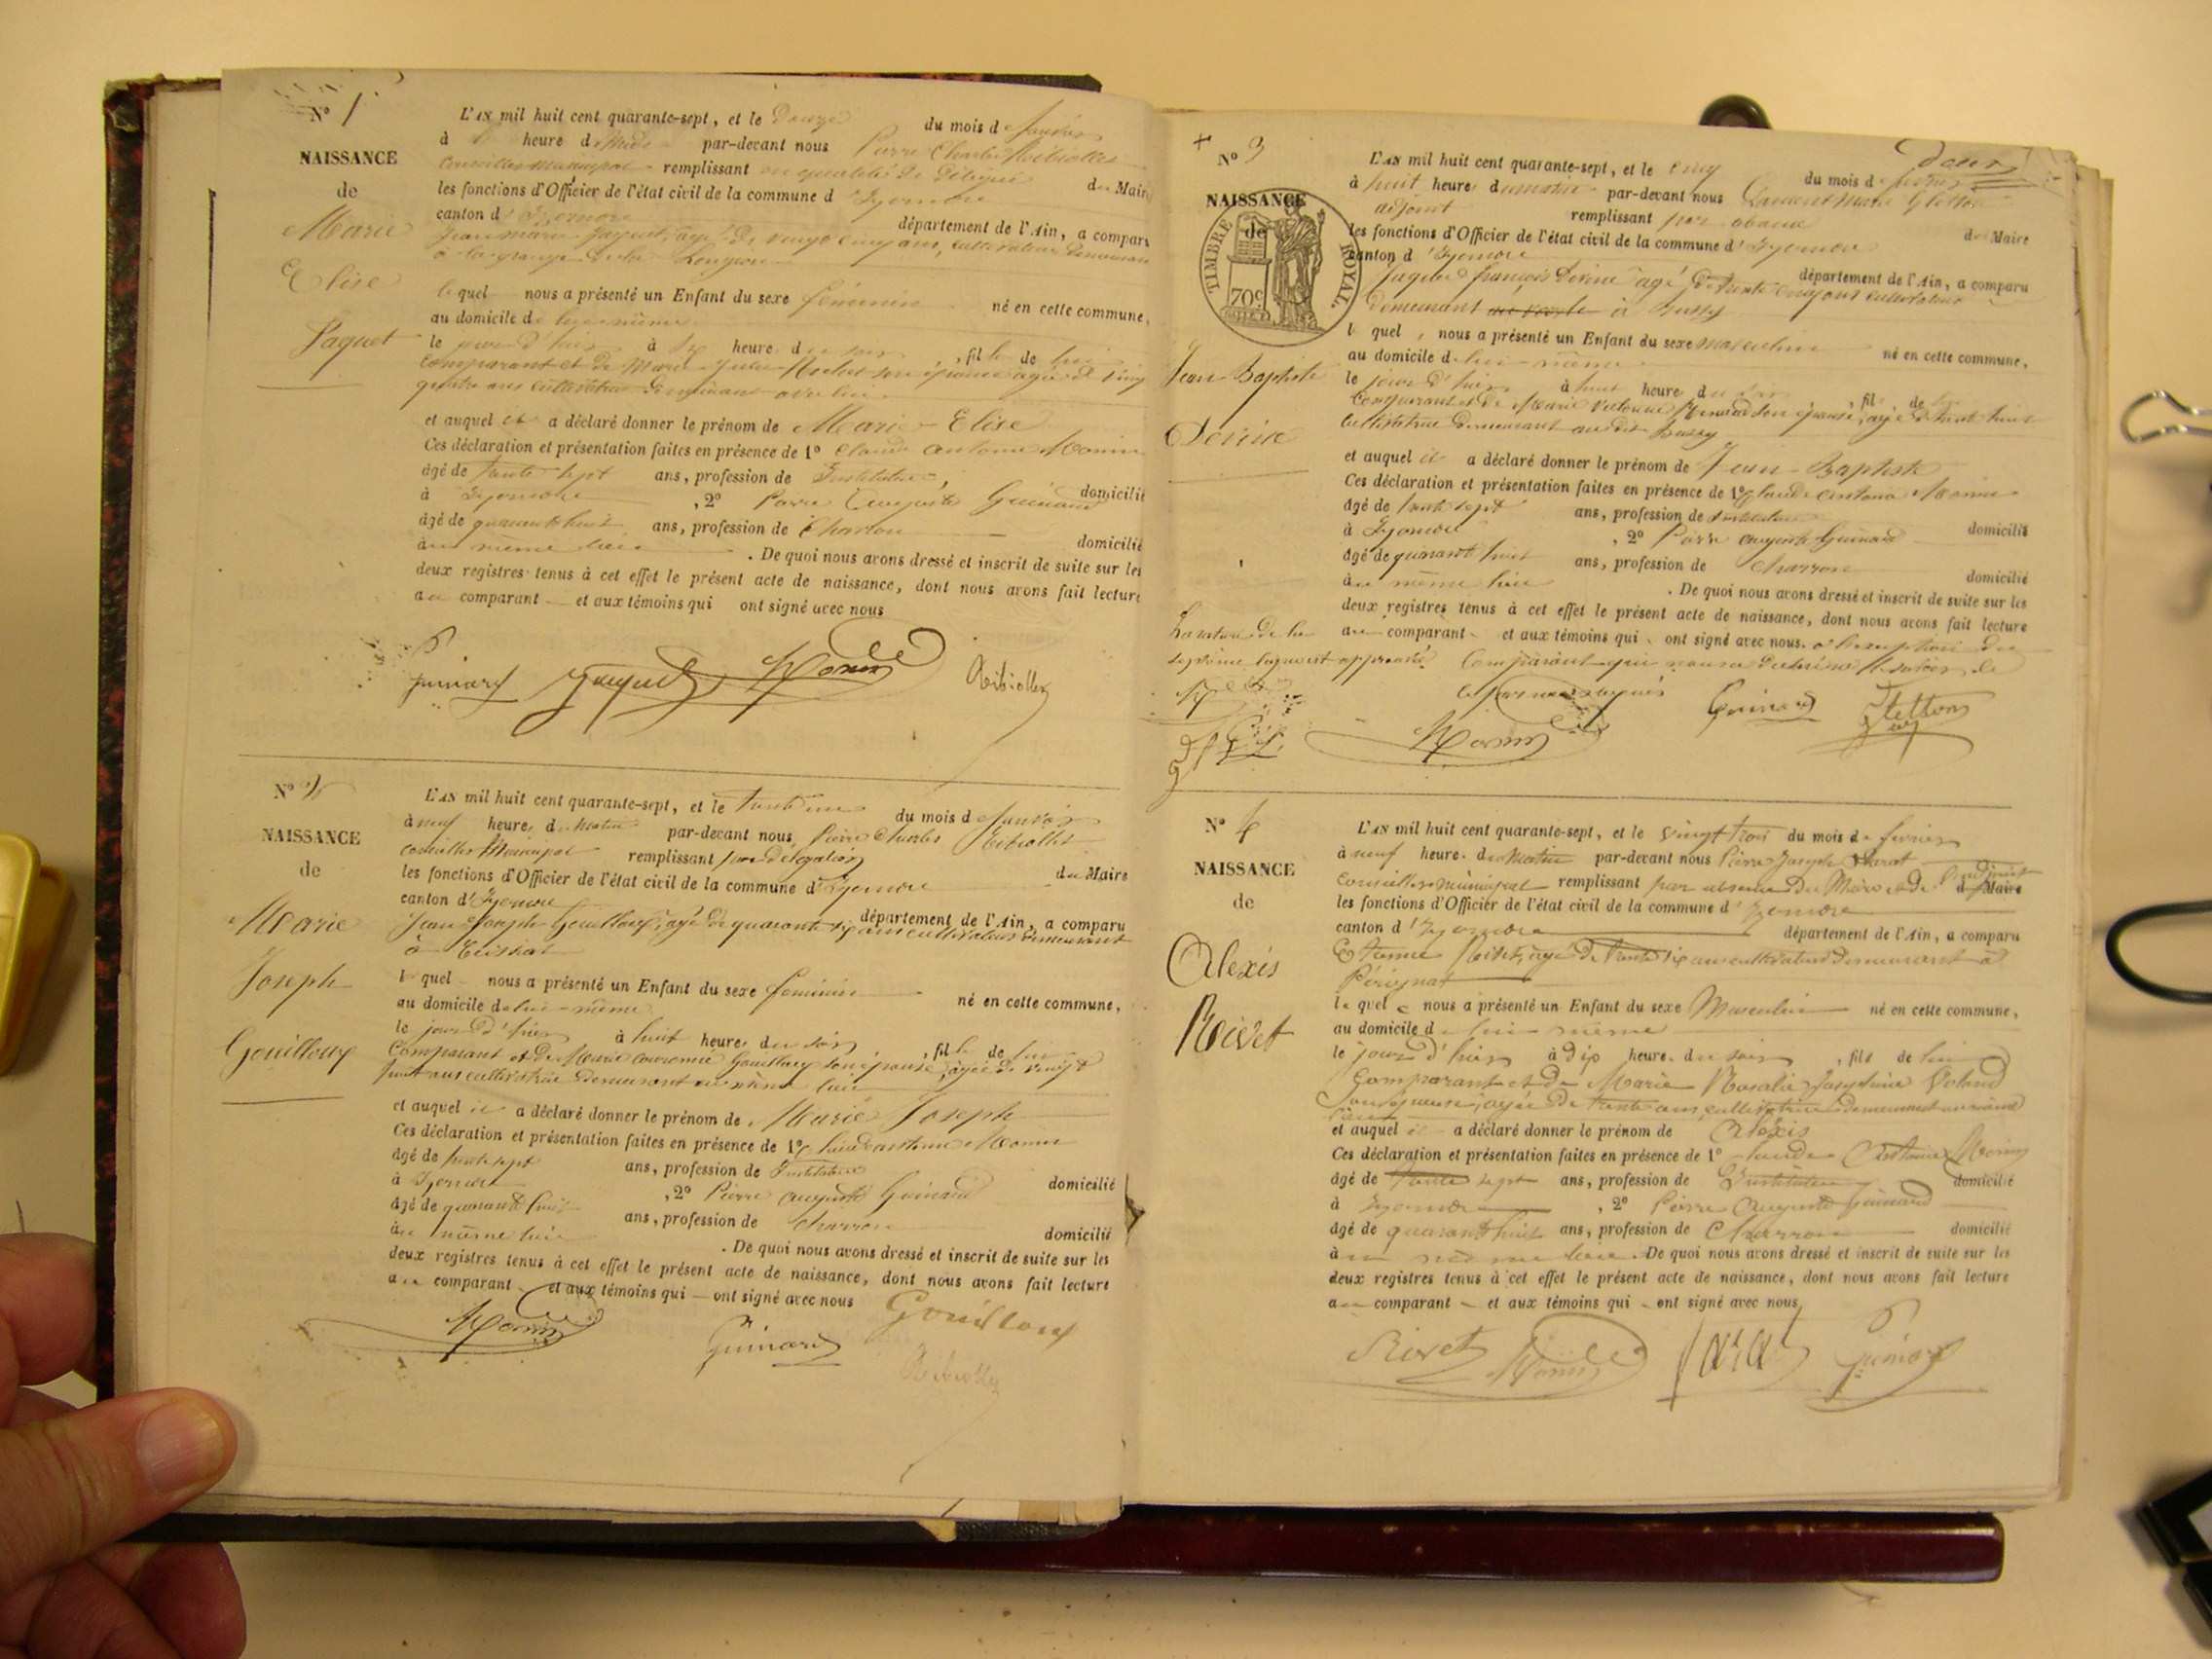 N° 1
NAISSANCE
de
Marie
Elise
Jaquet
L'AN mil huit cent quarante-sept, et le Douze du mois de Janvier
à heure de Midi par-devant nous Pierre Charles Ribiollet
Conseiller municipal remplissant en qualité de délégué du Maire
les fonctions d'Officier de l'état civil de la commune d'Izernore
canton d'Izernore département de l'Ain, a comparu
Jean marie Jaquet, agé de vingt cinq ans, cultivateur demeurant
à la grange de la
lequel nous a présenté un Enfant du sexe féminin né en cette commune,
au domicile de lui même
le jour d'hier à six heure du soir , fille de lui
comparant et de Marie Julie son épouse agée de vingt
quatre ans cultivatrice demeurant avec lui
et auquel il a déclaré donner le prénom de Marie-Elise
Ces déclaration et présentation faites en présence de 1° Claude antoine Monin
âgé de trente sept ans, profession de Instituteur, domicilié
à Izernore , 2° Pierre Auguste Guinard
âgé de quarante huit ans, profession de Charron domicilié
au même lieu . De quoi nous avons dressé et inscrit de suite sur les
deux registres tenus à cet effet le présent acte de naissance, dont nous avons fait lecture
au comparant et aux témoins qui ont signé avec nous
Guinard Jaquet Monin Ribiollet
N° 2
NAISSANCE
de
Marie
Joseph
Gouilloux
L'AN mil huit cent quarante-sept, et le trente un du mois de Janvier
à neuf heures du Matin par-devant nous Pierre Charles Ribiollet
conseiller Municipal remplissant par délégation du Maire
les fonctions d'Officier de l'état civil de la commune d'Izernore
canton d'Izernore département de l'Ain, a comparu
Jean Joseph Gouilloux, agé de quarante six ans cultivateur demeurant
à Ceissiat
lequel nous a présenté un Enfant du sexe féminin né en cette commune,
au domicile de lui-même
le jour d'hier à huit heures du soir , fille de lui
Comparant et de Marie Gouilloux son épouse, agée de vingt
huit ans cultivatrice demeurant au même lieu
et auquel il a déclaré donner le prénom de Marie Joseph
Ces déclaration et présentation faites en présence de 1° Claude antoine Monin
âgé de trente sept ans, profession de Instituteur domicilié
à Izernore , 2° Pierre auguste Guinard
âgé de quarante huit ans, profession de Charron domicilié
au même lieu . De quoi nous avons dressé et inscrit de suite sur les
deux registres tenus à cet effet le présent acte de naissance, dont nous avons fait lecture
au comparant et aux témoins qui ont signé avec nous
Monin Guinard Gouilloux
Ribiollet
deux
N° 3
NAISSANCE
de
TIMBRE ROYAL
70 c
Jean-Baptiste
L'AN mil huit cent quarante-sept, et le cinq du mois de février
à huit heures du matin par-devant nous Laurent Marie Gletton
adjoint remplissant par absence du Maire
les fonctions d'Officier de l'état civil de la commune d'Izernore
canton d'Izernore département de l'Ain, a comparu
françois agé de trente cinq ans cultivateur
demeurant à Bussy
lequel, nous a présenté un Enfant du sexe masculin né en cette commune,
au domicile de lui-même
le jour d'hier à huit heure du soir , fils de lui
comparant et de Marie Victoire son épouse, agée de trente huit
cultivatrice demeurant audit Bussy
et auquel il a déclaré donner le prénom de Jean-Baptiste
Ces déclaration et présentation faites en présence de 1° Claude antoine Monin
âgé de trente sept ans, profession de instituteur domicilié
à Izernore , 2° Pierre auguste Guinard
âgé de quarante huit ans, profession de Charron domicilié
au même lieu . De quoi nous avons dressé et inscrit de suite sur les
deux registres tenus à cet effet le présent acte de naissance, dont nous avons fait lecture
au comparant et aux témoins qui ont signé avec nous. à l'exception du
comparant qui nous a déclaré ne savoir le
faire
La rature de la
septième ligne est approuvée
Monin Guinard Gletton
adj
N° 4
NAISSANCE
de
Alexis
Rivet
L'AN mil huit cent quarante-sept, et le vingt trois du mois de février
à neuf heure du Matin par-devant nous Pierre Joseph
Conseiller municipal remplissant par absence du Maire et de l'adjoint du Maire
les fonctions d'Officier de l'état civil de la commune d'Izernore
canton d'Izernore département de l'Ain, a comparu
Etienne Rivet, agé de trente six ans cultivateur demeurant à
Pérignat
lequel nous a présenté un Enfant du sexe Masculin né en cette commune,
au domicile de lui même
le jour d'hier à dix heure du soir , fils de lui
Comparant et de Marie Rosalie Josephine
son épouse, agée de trente ans, cultivatrice demeurant au même
lieu
et auquel il a déclaré donner le prénom de Alexis
Ces déclaration et présentation faites en présence de 1° Claude Antoine Monin
âgé de trente sept ans, profession de Instituteur domicilié
à Izernore , 2° Pierre Auguste Guinard
âgé de quarante huit ans, profession de Charron domicilié
au même lieu . De quoi nous avons dressé et inscrit de suite sur les
deux registres tenus à cet effet le présent acte de naissance, dont nous avons fait lecture
au comparant et aux témoins qui ont signé avec nous
Rivet Monin Guinard